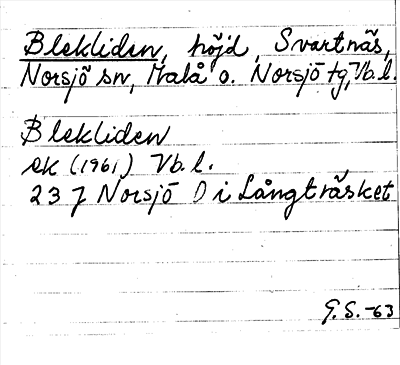 Blekliden, höjd, Svartnäs,
Norsjö sn, Malå o. Norsjö tg, Vb. l.
Blekliden
ek (1961) Vb. l.
23 J Norsjö D i Långträsket
G.S. -63